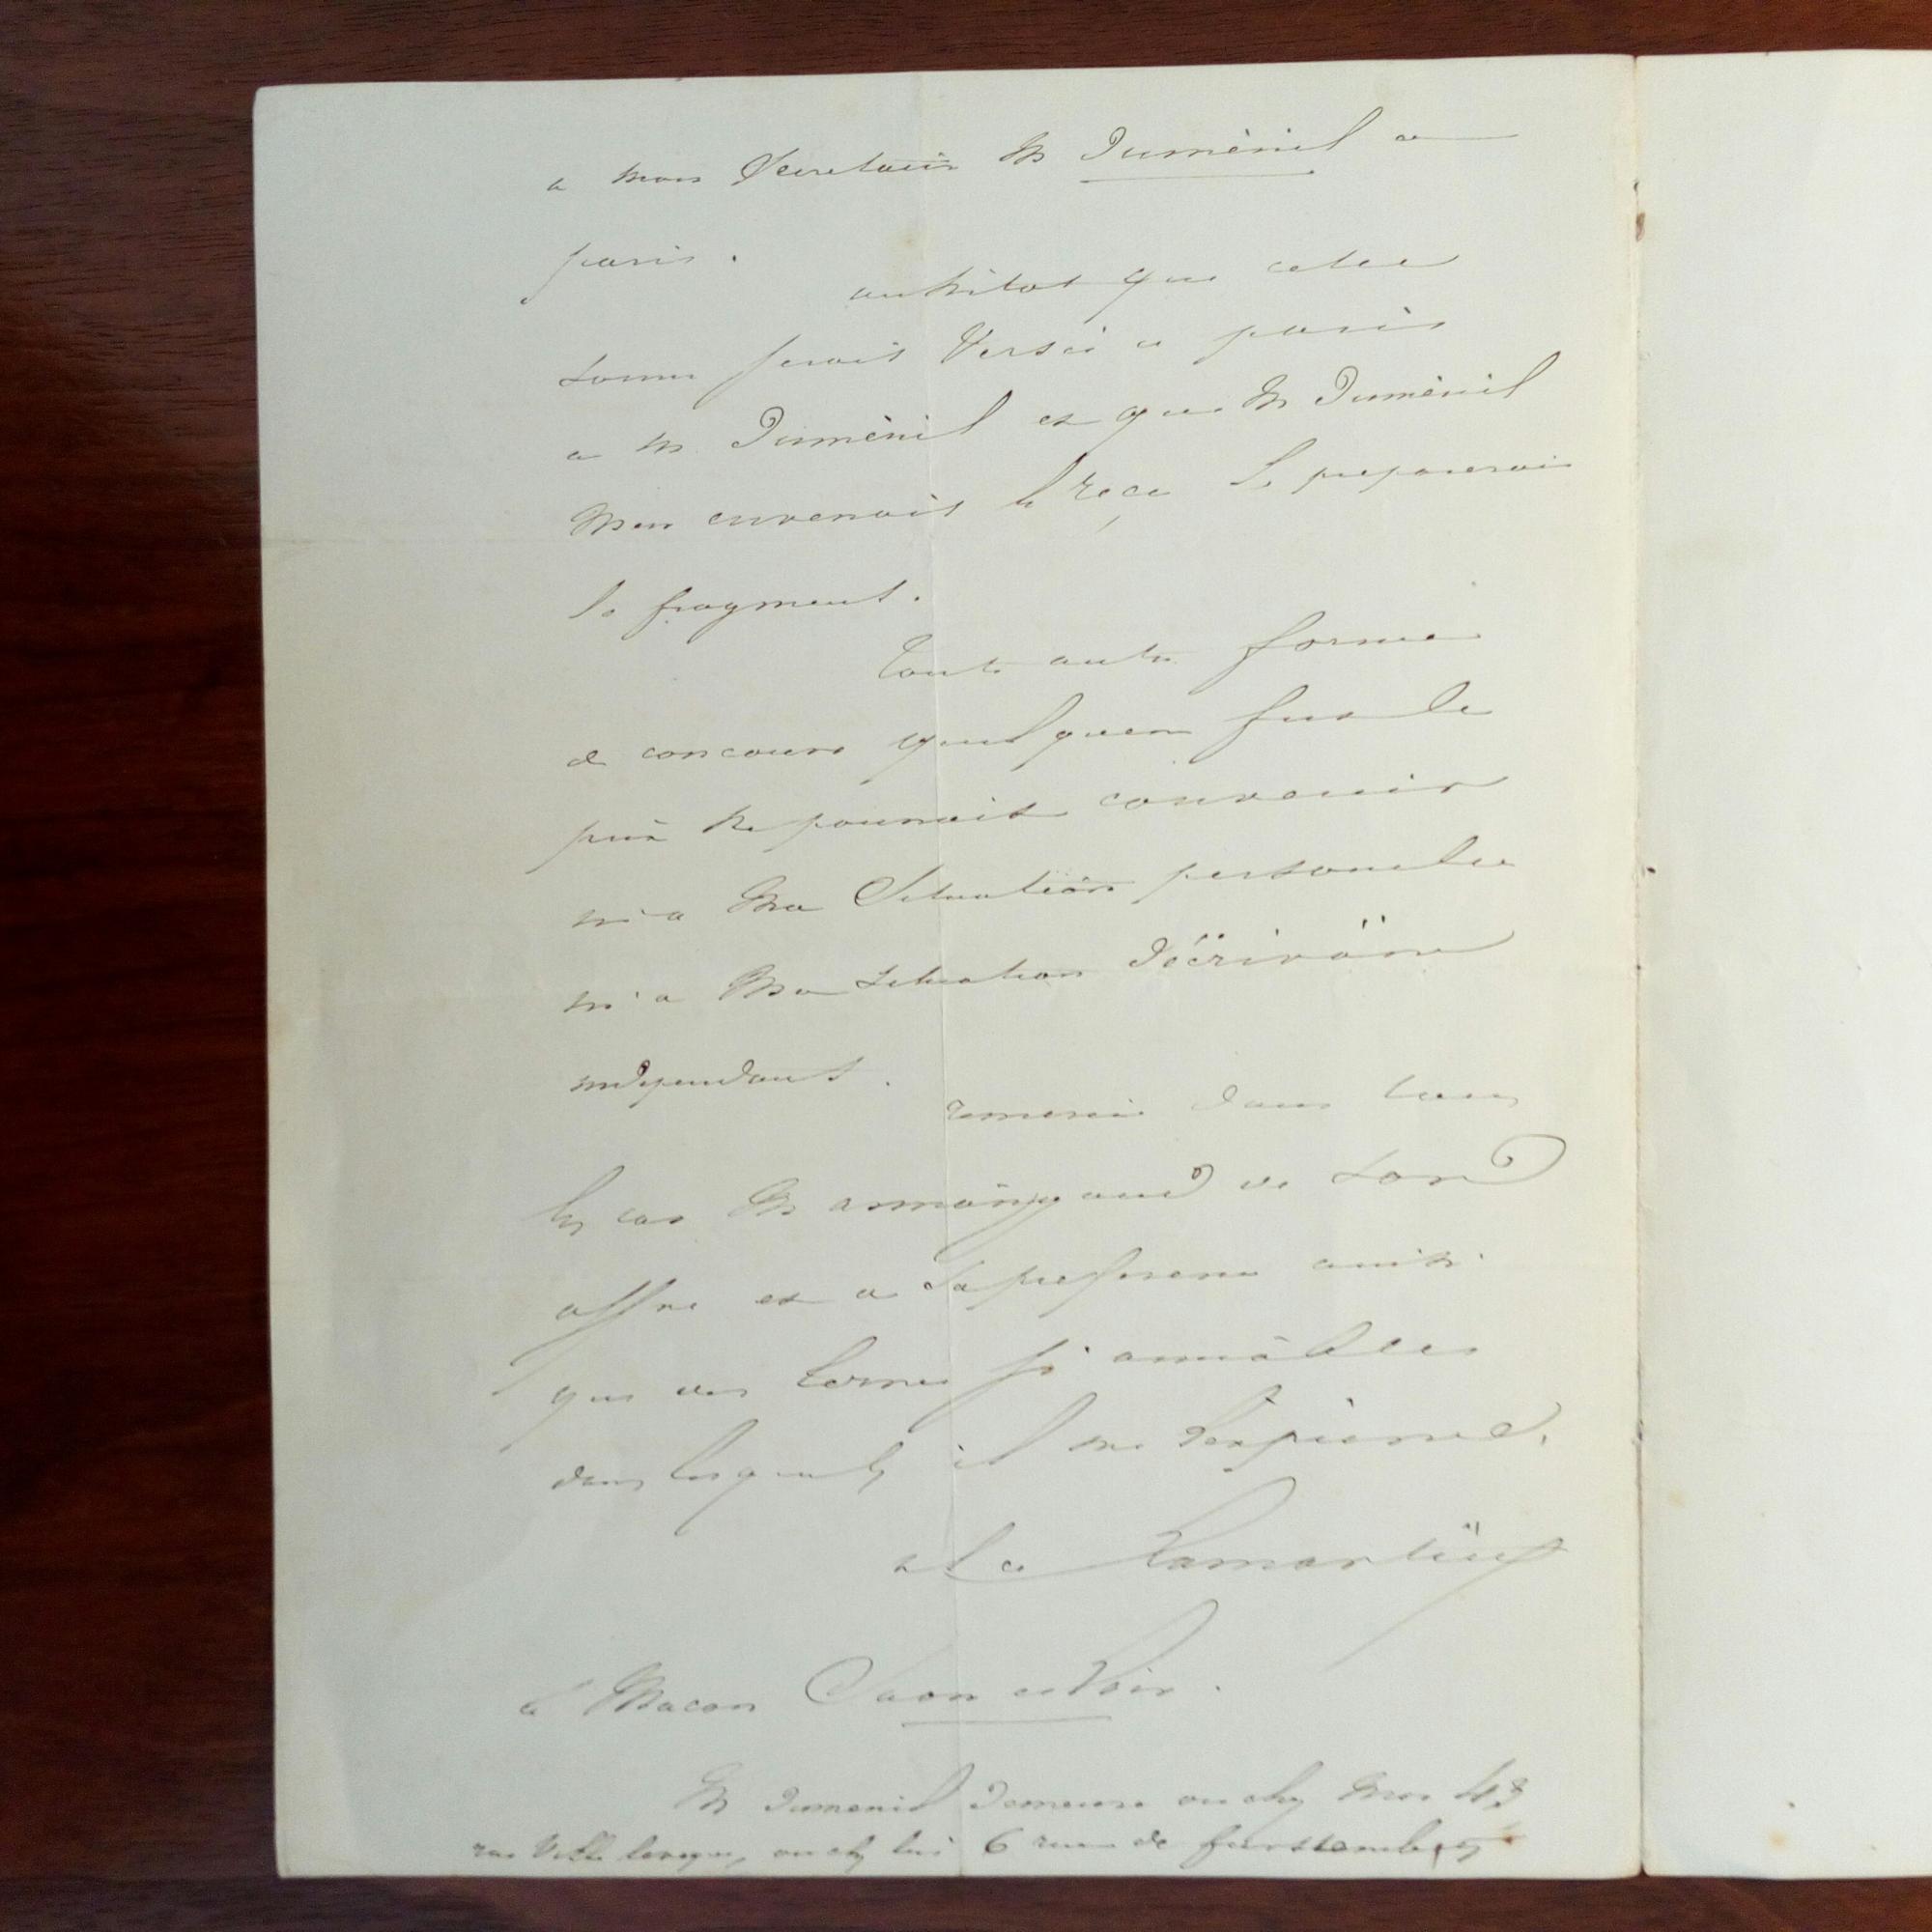 a mon Secretaire Mr Duménil a
paris.
aussitot que cette
somme serait versée a paris
a Mr Duménil et que Mr Duménil
men enverrait le reçu Je preparerais
le fragment.
Toute autre forme
de concours quelquen fut le
prix ne pourrait convenir
ni a Ma Situation personelle
ni a Ma situation d'écrivain
independant.
remercié dans tous
les cas Mr armangaud de son
offre et a sa preference ainsi
que des termes si aimables
dans lesquels il me l'exprime.
al de Lamartine
a Macon Saone et Loire.
Mr Dumenil demeure ou chez Moi 43
rue Ville leveque, ou chez lui 6 rue de furstemberg